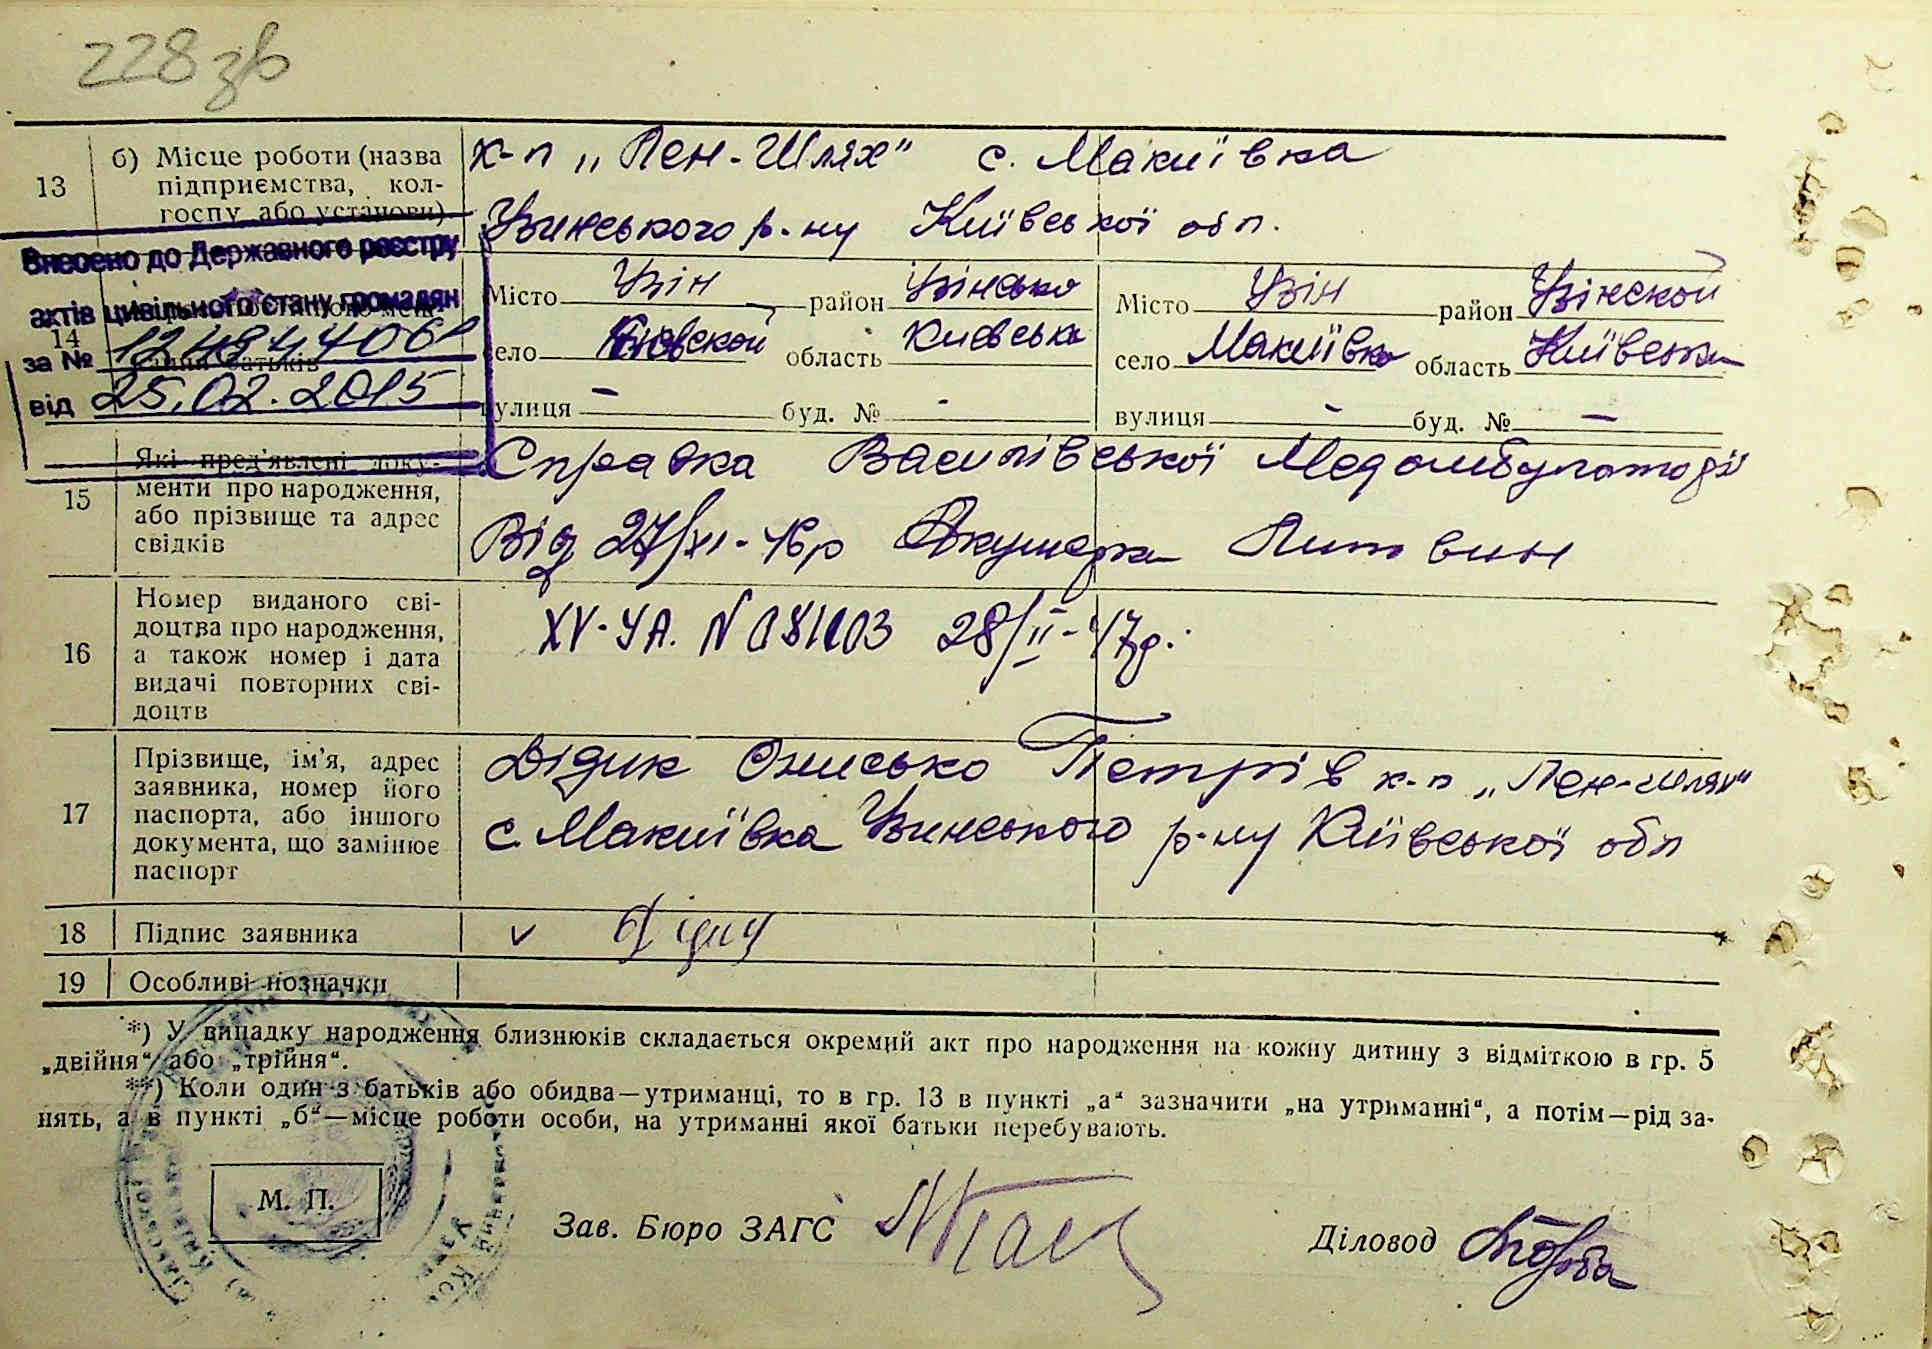 228 зв
13 б) Місце роботи (назва підприємства, колгоспу або установи)
к-п „Лен-Шлях" с. Макиївка
Узинського р-ну Київської обл.
Внесено до Державного реєстру
актів цивільного стану громадян
за №
від 25.02.2015
14
батьків
Місто Узін район Узінсько
село область Киевська
вулиця – буд. № -
Місто Узін район Узінской
село Макиївка область Київська
вулиця – буд. № –
15 Які пред'явлені документи про народження, або прізвище та адрес свідків
Справка Василівської Медамбулаторії
Від 27/XI-46р Акушерка Литвин
16 Номер виданого свідоцтва про народження, а також номер і дата видачі повторних свідоцтв
XV-УА. N 081003 28/II-47р.
17 Прізвище, ім'я, адрес заявника, номер його паспорта, або іншого документа, що замінює паспорт
Дідик Онисько Петрів к-п „Лен-шлях"
с. Макиївка Узинського р-ну Київської обл
18 Підпис заявника
v
19 Особливі позначки
*) У випадку народження близнюків складається окремий акт про народження на кожну дитину з відміткою в гр. 5
„двійня" або „трійня".
**) Коли один з батьків або обидва—утриманці, то в гр. 13 в пункті „а" зазначити „на утриманні", а потім—рід за-
нять, а в пункті „б"—місце роботи особи, на утриманні якої батьки перебувають.
М. П.
Зав. Бюро ЗАГС
Діловод